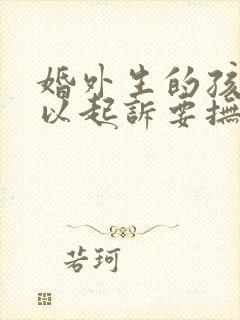 婚外生的孩
以起訴要撫
若珂